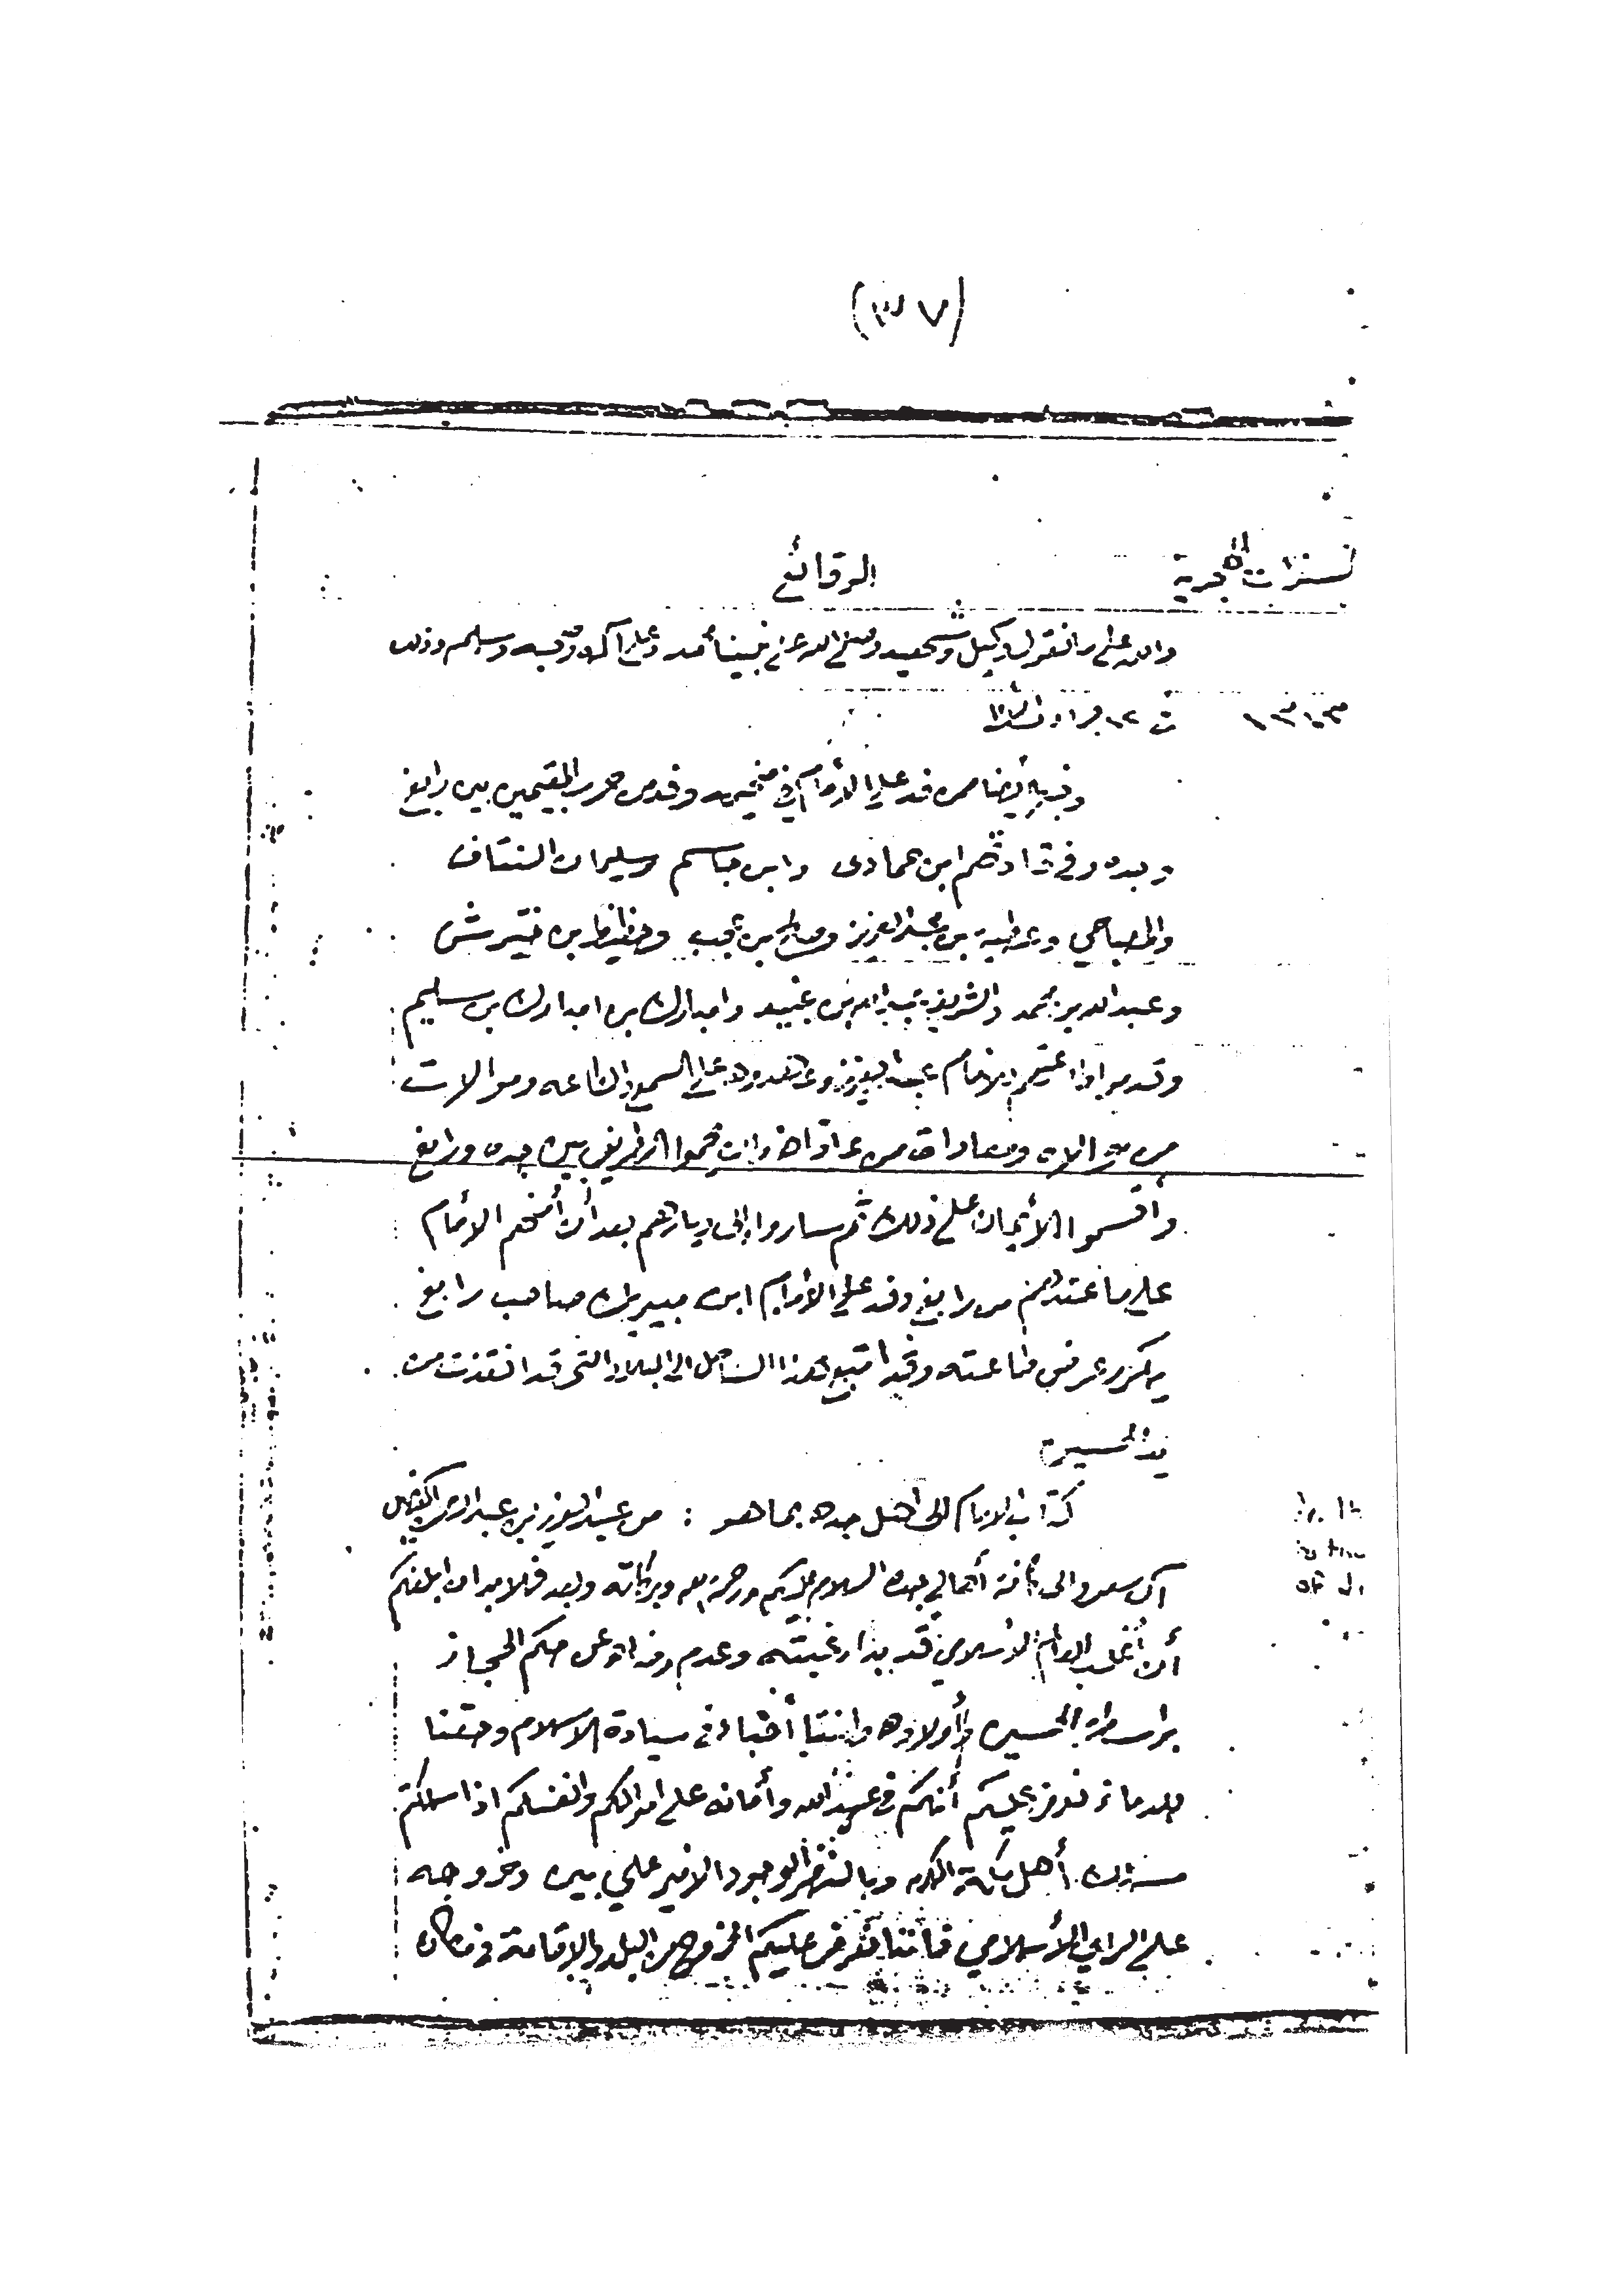 (٣٧)
السنوات الهجرية
الوقائع
والله على ما نقول وكيل وشهيد وصلى الله على نبينا محمد وعلى آله وصحبه وسلم وذلك
١٣٤٣
وفيه أيضا وفد على الأمام في مخيمه وفد من حرب المقيمين بين رابغ
وجده وفي قادتهم ابن حمادى وابن جاسم وسليمان النتاف
والمصباحي وعطية بن عبدالعزيز وصالح بن عجب وحفيظ بن ختيرش
وعبدالله بن محمد والشريف عبدالله بن عبيد وامبارك بن امبارك بن سليم
وقدموا طاعتهم للإمام عبدالعزيز وعاهدوه على السمع والطاعه وموالات
من والاه ومعادات من عاداه وان يحموا الطريق بين جده ورابغ
وأقسموا الأيمان على ذلك ثم ساروا إلى ديارهم بعد أن أمنهم الأمام
على ما عندهم من رابغ وفد على الأمام ابن مبيريك صاحب رابغ
يكرر عرض طاعته وقد اتبع هذا المثل الى البلاد التي قد انقذت من
يد الحسين
كتاب الامام الى اهل جده بما هو : من عبدالعزيز بن عبدالرحمن الفيصل
آل سعود الى كافة أهالي جده السلام عليكم ورحمة الله وبركاته وبعد فلابد ان ابلغكم
أن أغلب العالم الاسلامي قد ابدا رغبته وعدم رضاه عن حكم الحجاز
بواسطة الحسين وأولاده واننا أحبابا في سيادة الاسلام وحقنا
للدماء نعرض عليكم أنكم في عهد الله وأمانه على اموالكم وانفسكم اذا سلكتم
مسلك أهل مكة المكرمه وبالنظر لوجود الامير علي بين وخروجه
على الراي الأسلامي فاننا نعرض عليكم الخروج من البلد والاقامة في مكان